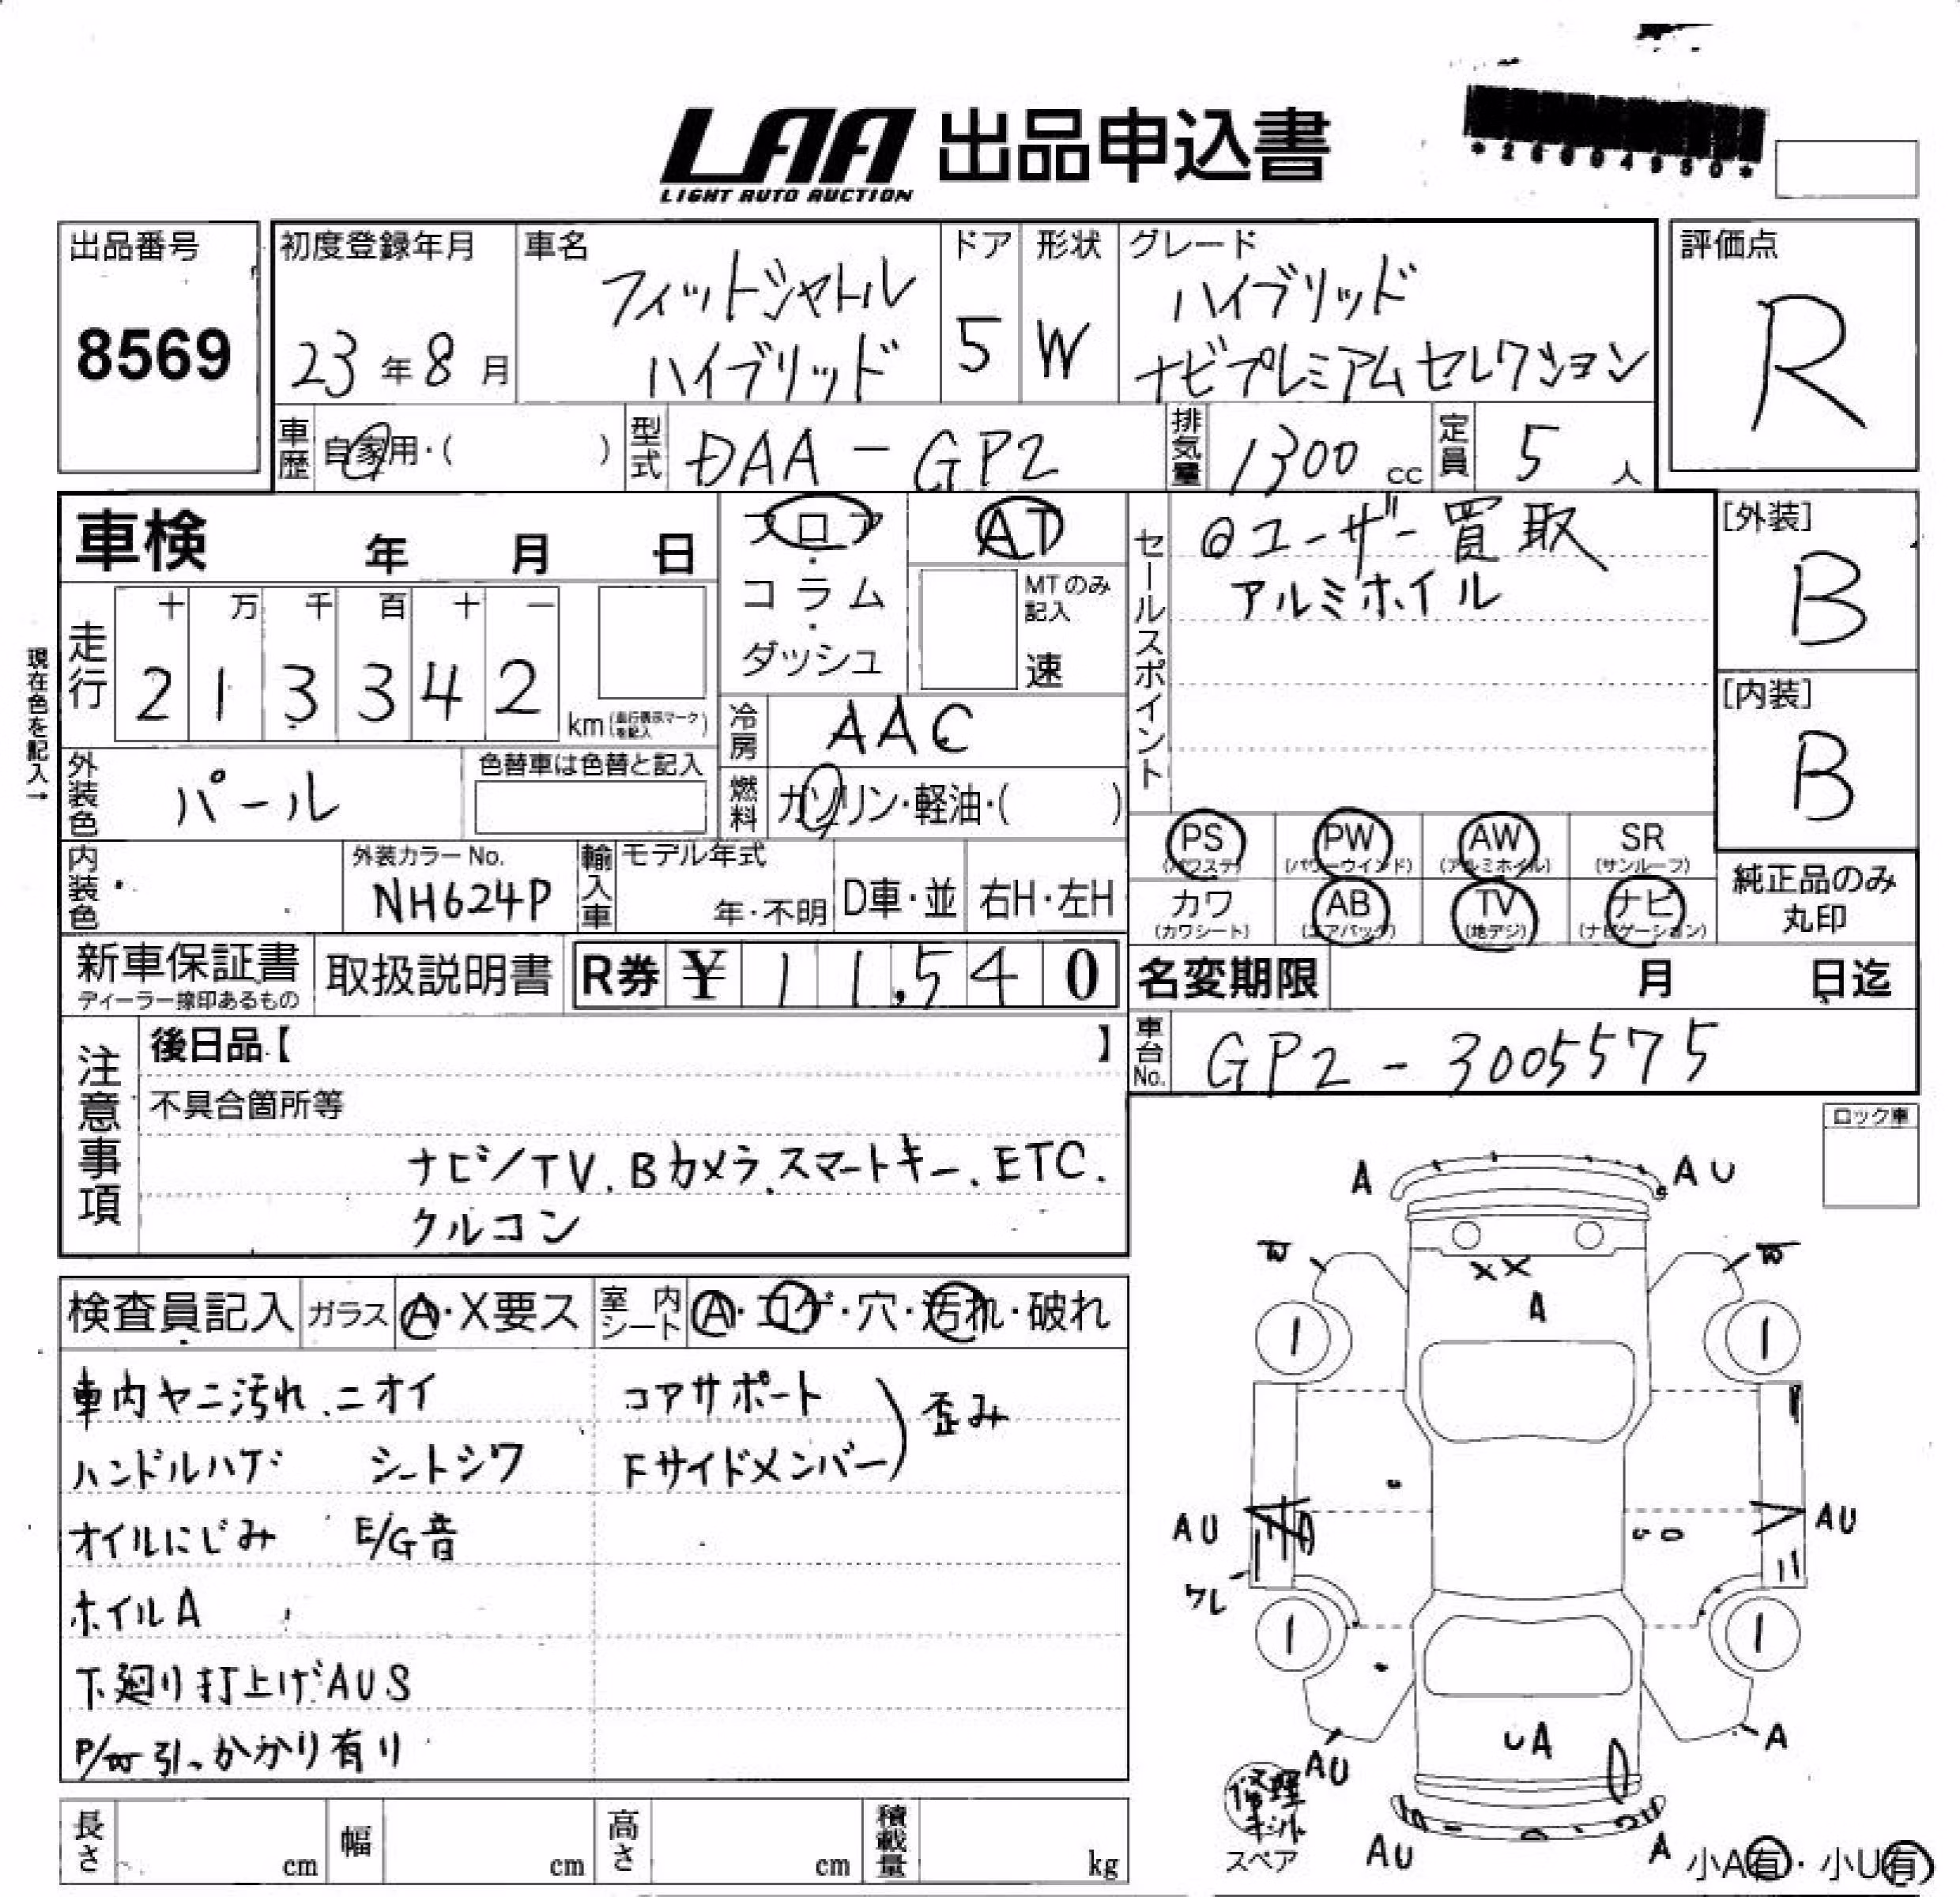 LAA 出品申込書
LIGHT AUTO AUCTION
出品番号
8569
初度登録年月
23年8月
車名
フィットシャトル
ハイブリッド
ドア
5
形状
W
グレード
ハイブリッド
ナビプレミアムセレクション
評価点
R
車歴 自家用・( )
型式 DAA-GP2
排気量 1300 cc
定員 5 人
車検 年 月 日
現在色を記入→
走行
十 万 千 百 十 一
2 1 3 3 4 2
km
フロア
・
コラム
・
ダッシュ
AT
MTのみ
記入
速
冷房 AAC
燃料 ガソリン・軽油・( )
セールスポイント
◎ユーザー買取
アルミホイル
[外装]
B
[内装]
B
外装色 パール
色替車は色替と記入
内装色
外装カラーNo.
NH624P
輸入車
モデル年式
年・不明
D車・並
右H・左H
PS PW AW SR
(パワステ) (パワーウインド) (アルミホイル) (サンルーフ)
カワ AB TV ナビ
(カワシート) (エアバッグ) (地デジ) (ナビゲーション)
純正品のみ
丸印
新車保証書
ディーラー捺印あるもの
取扱説明書
R券 ¥ 11,540
名変期限 月 日迄
車台No. GP2-3005575
注意事項
後日品【 】
不具合箇所等
ナビ/TV.Bカメラ.スマートキー.ETC.
クルコン
ロック車
検査員記入
ガラス A・X要ス
室内シート A・コゲ・穴・汚れ・破れ
車内ヤニ汚れ.ニオイ
コアサポート
歪み
ハンドルハゲ シートシワ
Fサイドメンバー
オイルにじみ E/G音
ホイルA
下廻り打上げAUS
P/W引っかかり有り
A
AU
W
W
XX
A
AU
A
AU
ワレ
UA
AU
A
修理
キット
スペア
AU
A
小A有・小U有
長さ cm
幅 cm
高さ cm
積載量 kg